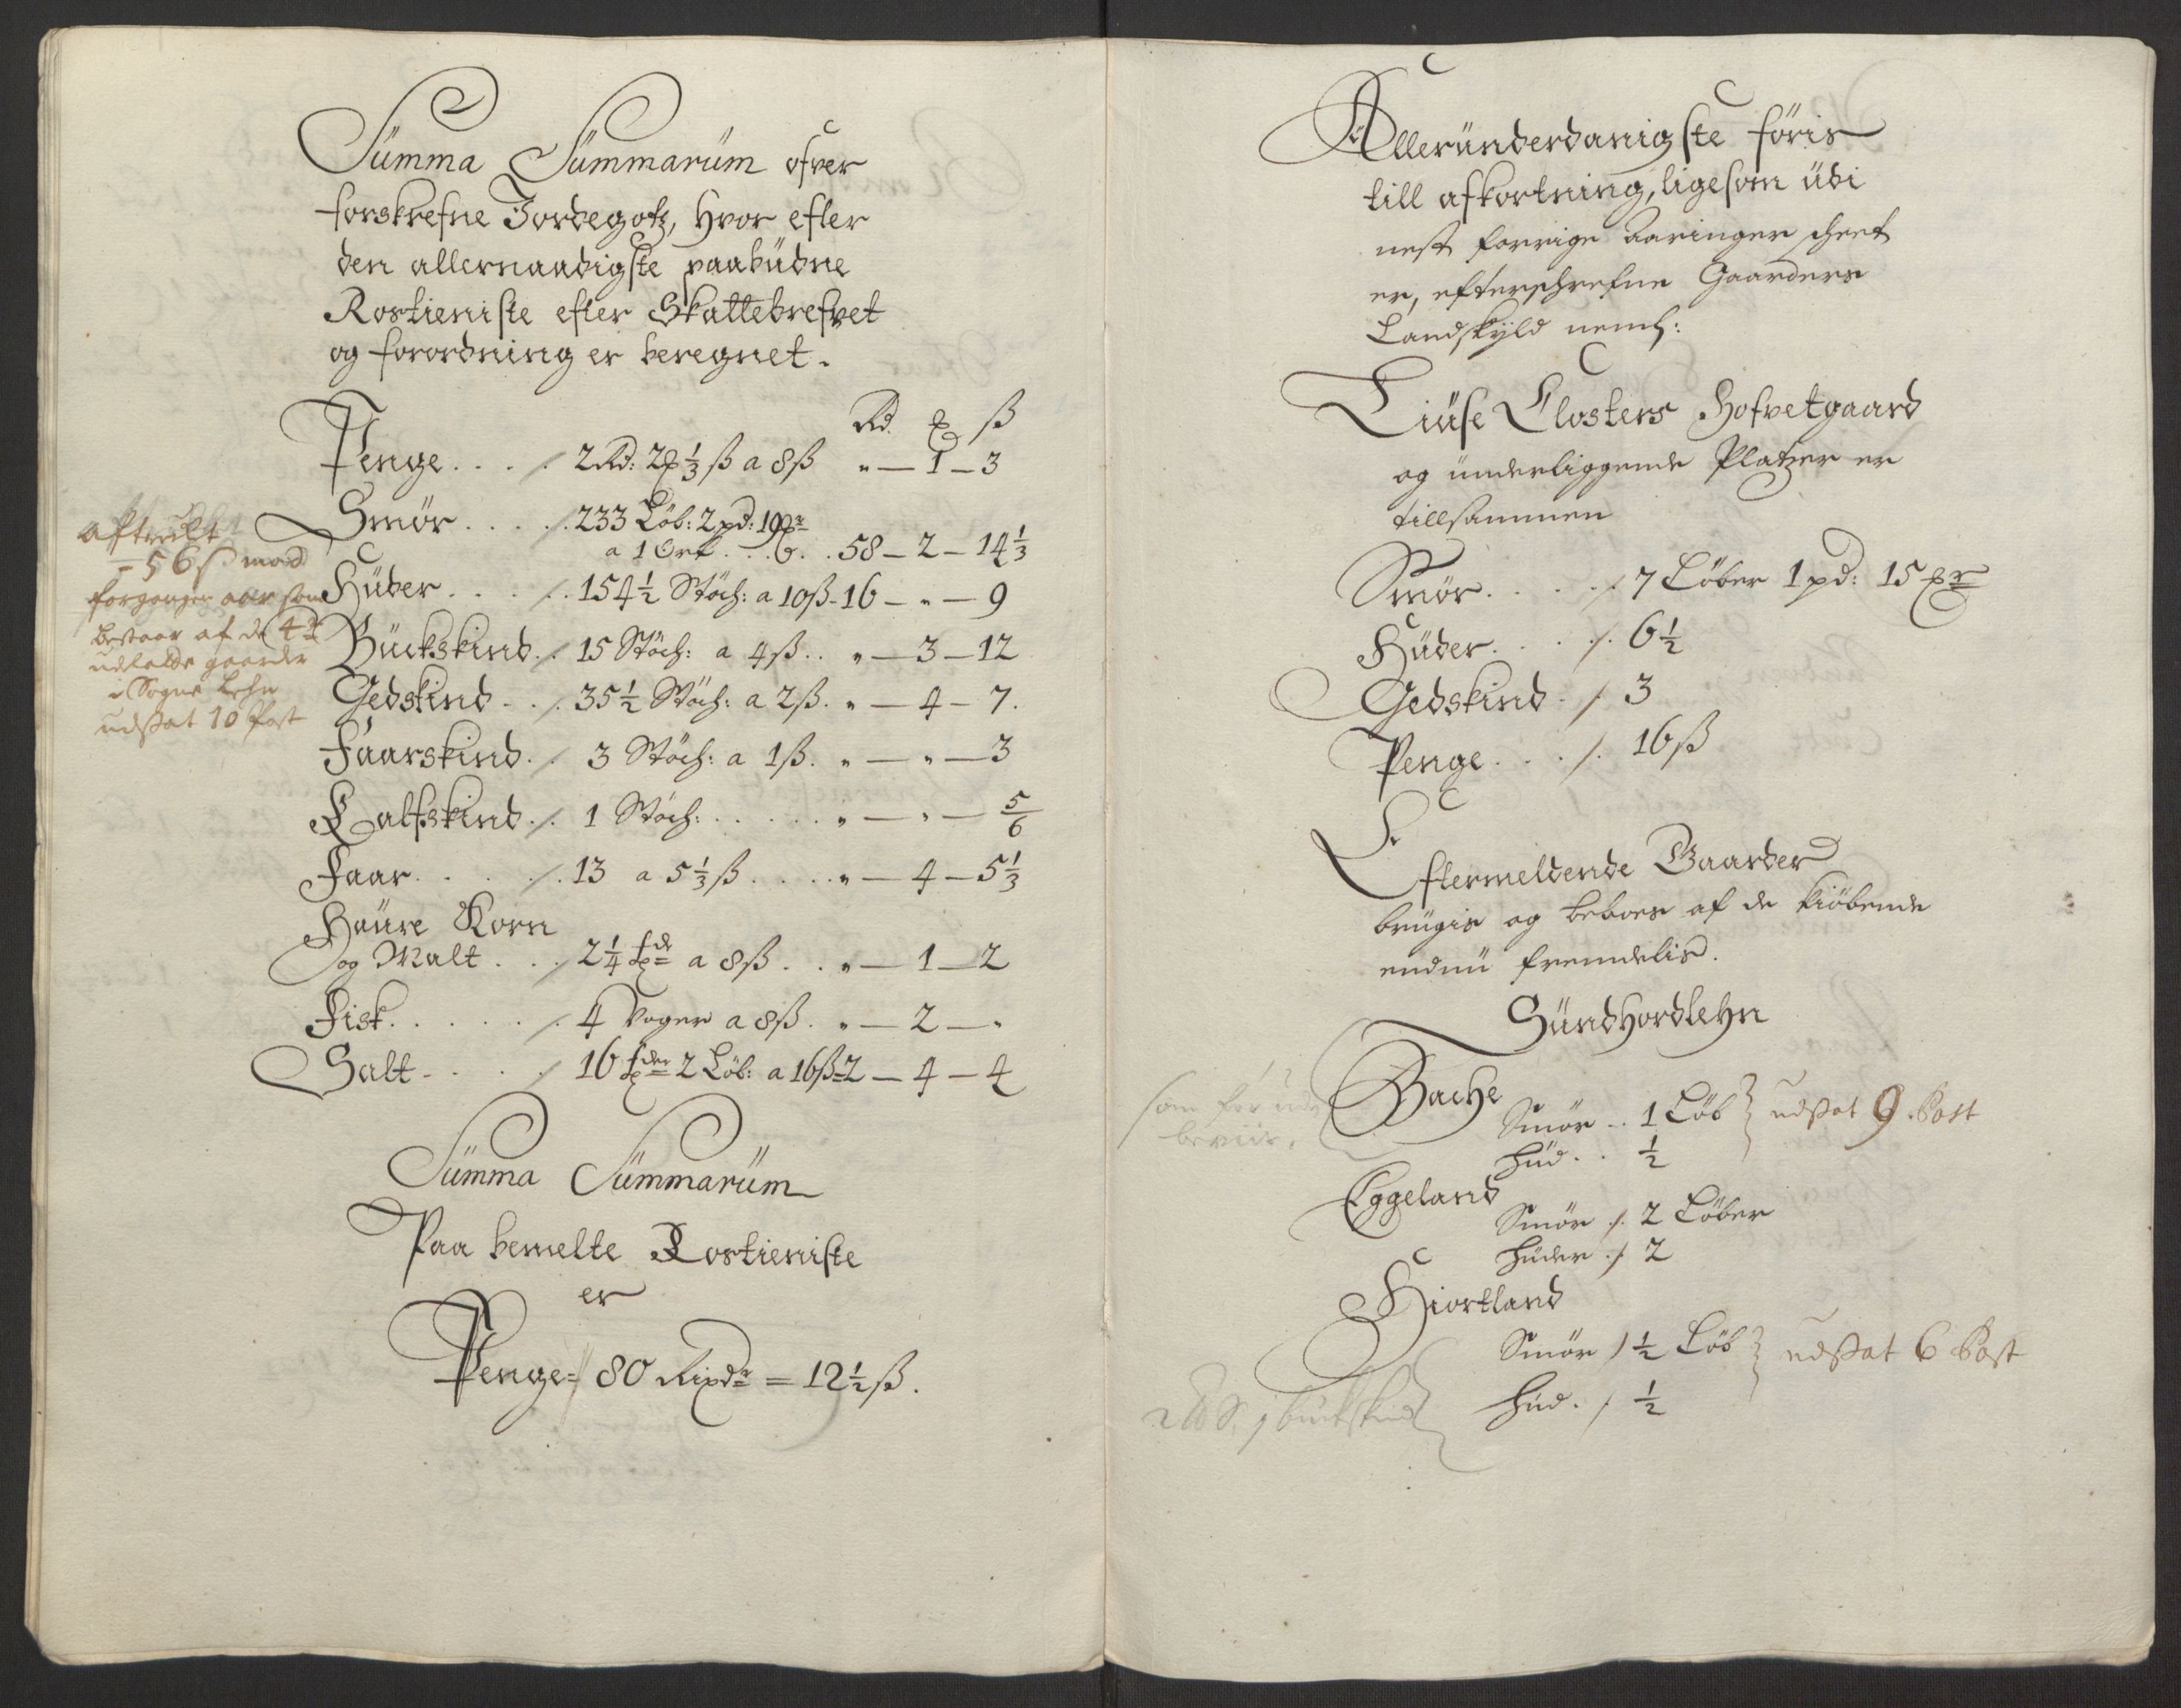 Summa Summarum ofver
forskrefne Jordegotz, hvor efter
den allernaadigste paabüdne
Rostieniste efter Skattebrefvet
og forordning er beregnet.
Rd. ß
Penge . . . . 2 Rd: 2 1/3 ß a 8ß " — 1 — 3
Smör . . . . . 233 Löb: 2 pd: 19
a 1 Ort . . . 58 — 2 — 14 1/3
Hüder . . . . . 154 1/2 Stöch: a 10ß - 16 — " — 9
Buckskind . / . 15 Stöch: a 4ß . . " — 3 — 12
Gedskind . . / . 35 1/2 Stöch: a 2ß . " — 4 — 7.
Faarskind . . 3 Stöch: a 1ß . " — " — 3
Calfskind . / . 1 Stöch: . . . . . . " — " — 5/6
Faar . . . . . / . 13 a 5 1/3 ß . . . . . " — 4 — 5 1/3
Haüre Korn
og Malt . . . / 2 1/4 a 8ß . . " — 1 — 2
Fisk . . . . . . / 4 Voger a 8ß . " — 2 — "
Salt . . . . / 16 2 Löb: a 16ß = 2 — 4 — 4
aftvelt
56 ß mod
forgangen aar som
bestaar af de 4de
udlalde gaarder
i Sogne Lehn
udsat 10 Post
Summa Summarüm
Paa bemelte Rostieniste
er
Penge = 80 Rixdr = 12 1/2 ß.
Alleründerdanigste föris
till afkortning, ligesom üdi
nest forrige Aaringer scheet
er, efterschrefne Gaarders
Landskyld neml:
Liüse Closters Hofvetgaard
og ünderliggende Platzer er
tillsammen
Smör . . . . / 7 Löber 1 pd: 15
Hüder . . . / . 6 1/2
Gedskind . / 3
Penge . . . / . 16ß
Eftermeldende Gaarder
brügis og beboes af de kiöbende
endnü fremdelis.
Sündhordlehn
Bache
Smör . . 1 Löb } udsat 9. Post
Hüd . . 1/2
som för
beviis.
Eggeland
Smör . / . 2 Löber
Hüder . / 2
Hiortland
Smör / 1/2 Löb } udsat 6 Post
Hüd . / 1/2
1 buckskind